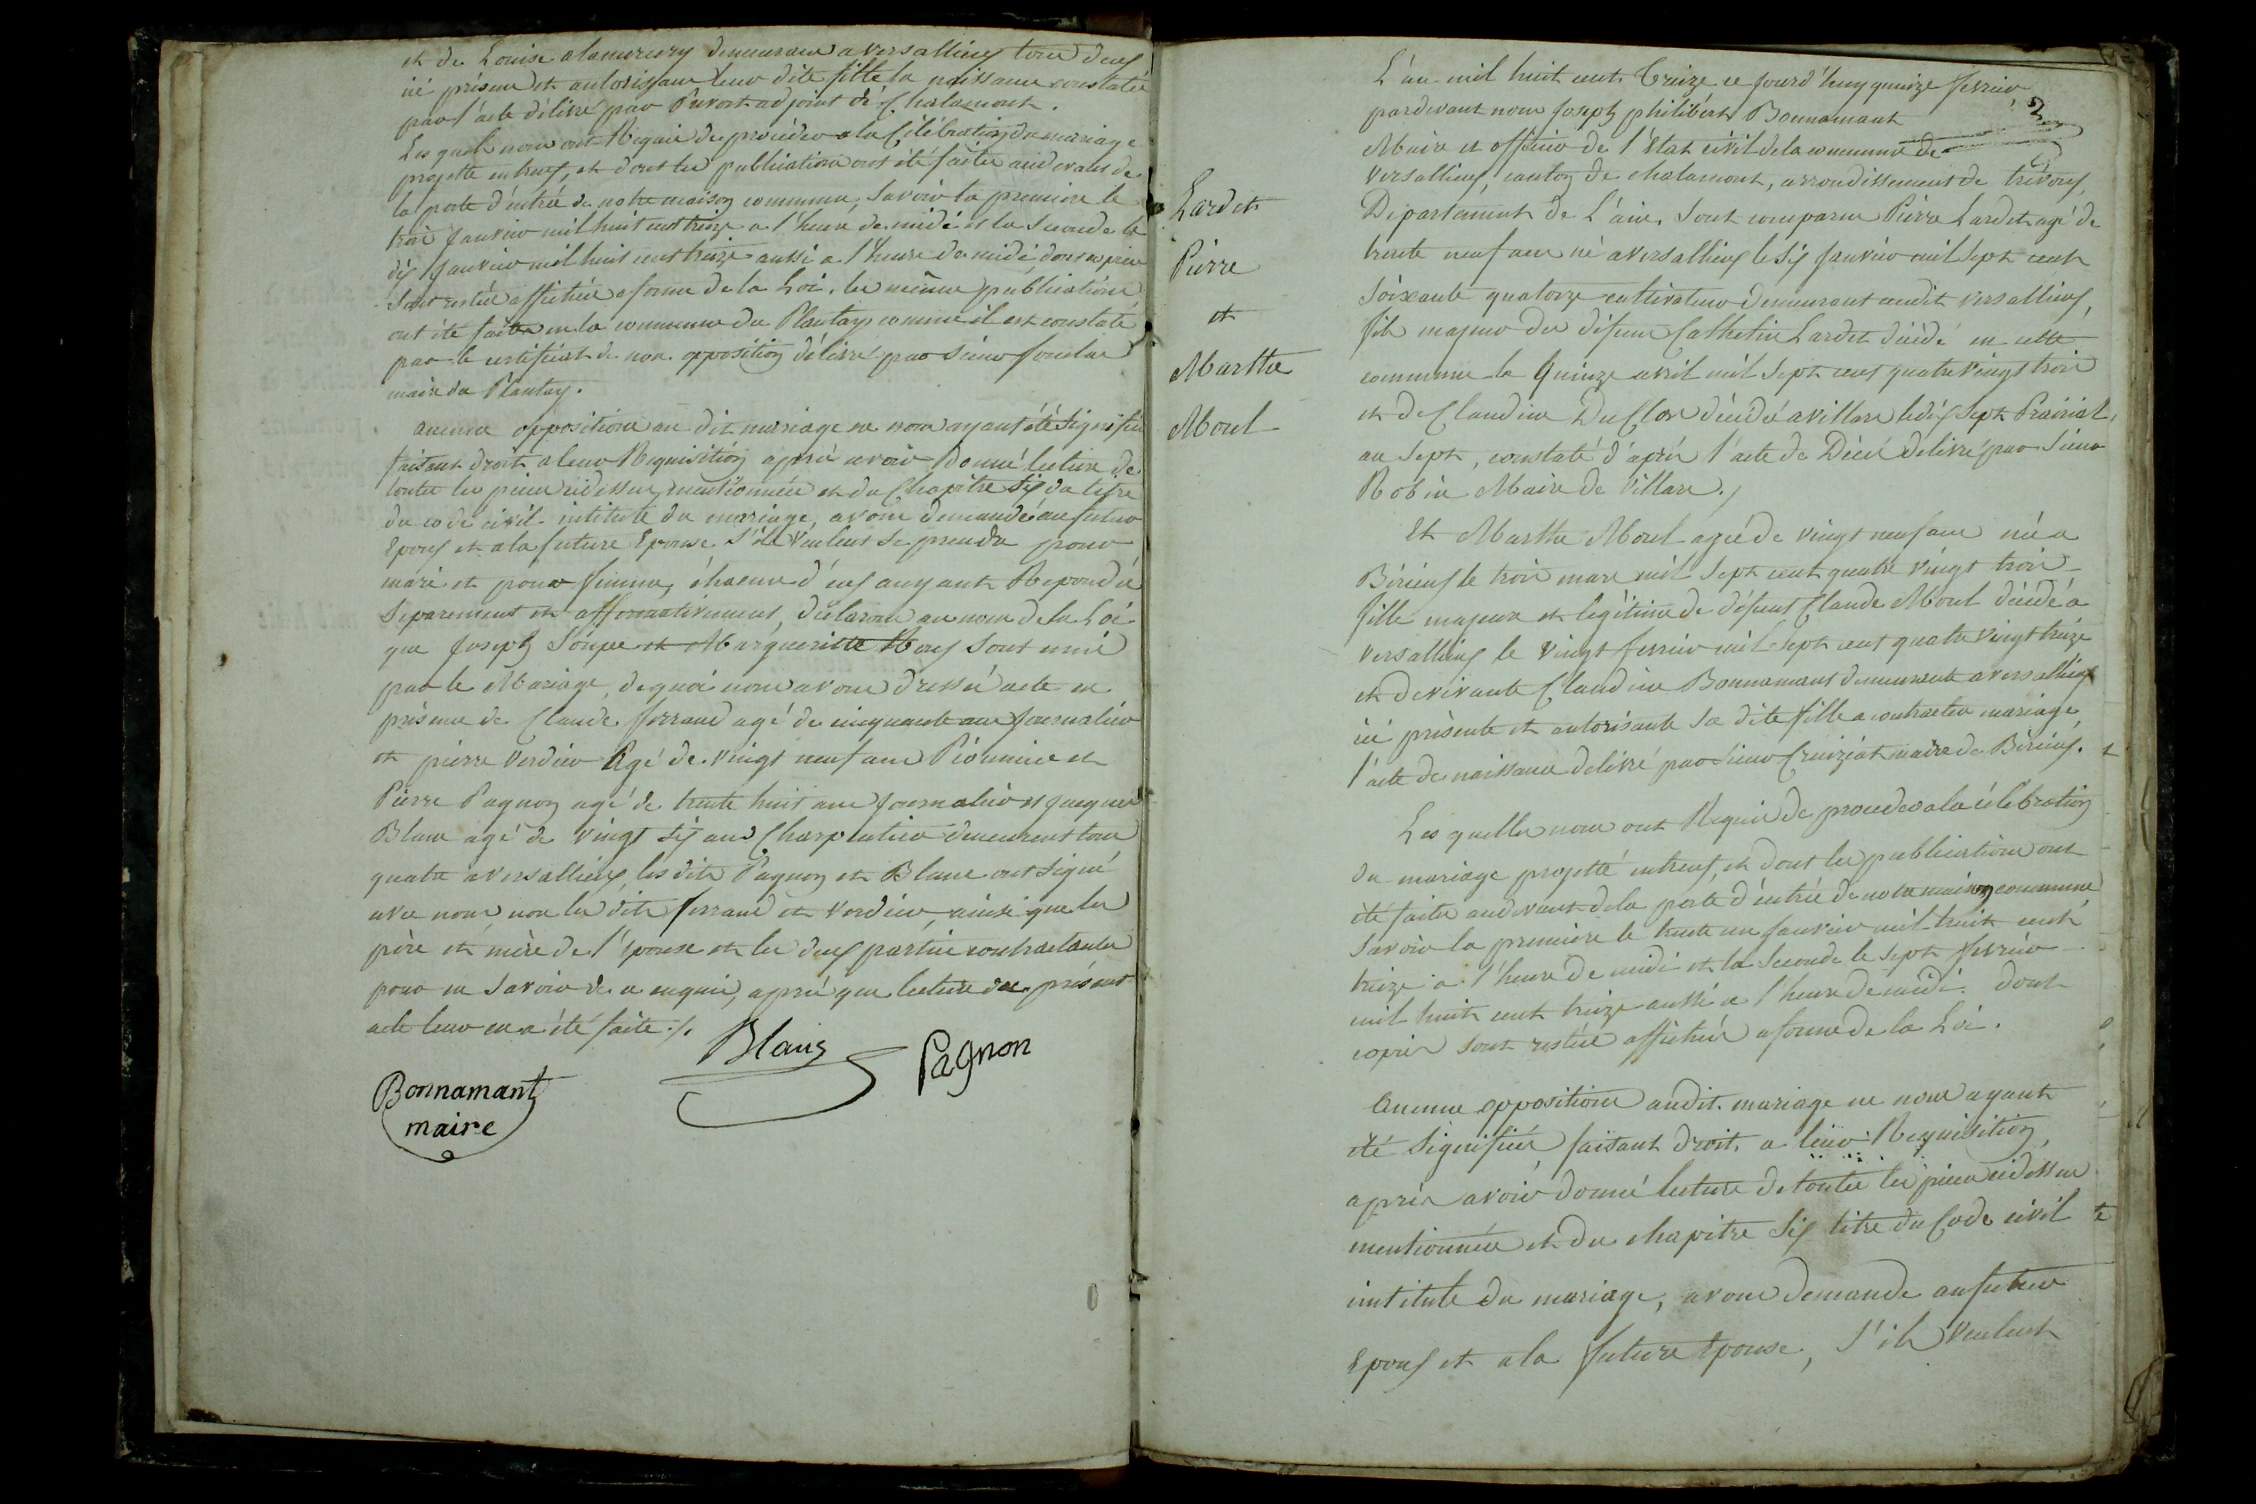 et de Louise alamercery demeurant a versallieux tous deux
ici présent et autorisant leur dite fille la naissance constatée
par l'acte délivré par Puvort adjoint de Chalamont.
Les quels nous ont Requis de procéder a la Célébration du mariage
projetté entreux, et dont les publications ont été faites au devant de
la porte d'entrée de notre maison commune, Savoir la premiere le
trois janvier mil huit cent treize a l'heure de midi et la Seconde le
dix janvier mil huit cent treize aussi a l'heure de midi dont copies
sont restées affichées a forme de la Loi. les mêmes publications
ont été faites en la commune du Plantay comme il est constaté
par le certificat de non opposition délivré par Sieur
maire du Plantay.
aucunes oppositions au dit mariage ne nous ayant été Signifiées
faisant droit a leur Requisition après avoir donné lecture de
toutes les pieces cidessus mentionnées et du Chapitre Six du titre
du code civil intitulé du mariage, avons demandé au futur
Epoux et a la future Epouse S'ils Veulent Se prendre pour
mari et pour femme, chacun d'eux ayant Repondu
Séparement et affirmativement, déclarons au nom de la Loi
que Joseph Soupe et Margueritte Moux Sont unis
par le Mariage, de quoi nous avons dressé acte en
présence de Claude ferrand agé de cinquante ans Journalier
et pierre Verdier Agé de vingt neuf ans Pionnier et
Pierre Pagnon agé de trente huit ans Journalier et Jacques
Blanc agé de vingt Six ans Charpentier demeurent tous
quatre a versallieux, les dits Pagnon et Blanc ont Signé
avec nous non les dits ferrand et Verdier, ainsi que les
père et mère de l'épouse et les deux parties contractantes
pour ne Savoir de ce enquis, après que lecture du présent
acte leur en a été faite ./.
Blanc
Pagnon
Bonnamant
maire
Lardet
Pierre
et
Marthe
Morel
L'an mil huit cent Treize ce jourd'huy quinze fevrier
pardevant nous Joseph philibert Bonnamant
Maire et officier de l'état civil de la commune de
Versallieux, canton de chalamont, arrondissement de trévoux,
Département de L'ain, Sont comparus Pierre Lardet agé de
trente neuf ans né a versallieux le Six Janvier mil Sept cent
Soixante quatorze cultivateur demeurant audit versallieux,
fils majeur du défunt Cathelin Lardet décédé en cette
commune le Quinze avril mil Sept cent quatre vingt trois
et de Claudine DuClos décédé a villars le dix Sept Prairial,
an Sept, constaté d'après l'acte de Décès delivré par Sieur
Robin Maire de Villars.
Et Marthe Morel agée de vingt neuf ans née a
Birieux le trois mars mil Sept cent quatre vingt trois
fille majeure et légitime de défunt Claude Morel décédé a
versallieux le vingt fevrier mil Sept cent quatre vingt treize
et de vivante Claudine Bonnamant demeurante a versallieux
ici présente et autorisante Sa dite fille a contracter mariage,
l'acte de naissance delivré par Sieur Cruiziat maire de Birieux.
Les quelles nous ont Requis de proceder a la célébration
du mariage projetté entreux, et dont les publications ont
été faites audevant de la porte d'entrée de notre maison commune,
Savoir la premiere le trente un janvier mil huit cent
treize a l'heure de midi et la Seconde le Sept fevrier
mil huit cent treize aussi a l'heure de midi. dont
copies sont restées affichées a forme de la Loi.
Aucunes oppositions audit mariage ne nous ayant
été Signifiées faisant droit a leur Requisition,
après avoir donné lecture de toutes les pieces cidessus
mentionnées et du chapitre Six titre du Code civil
intitulé du mariage, avons demandé au futur
Epoux et a la future Epouse, S'ils Veulent